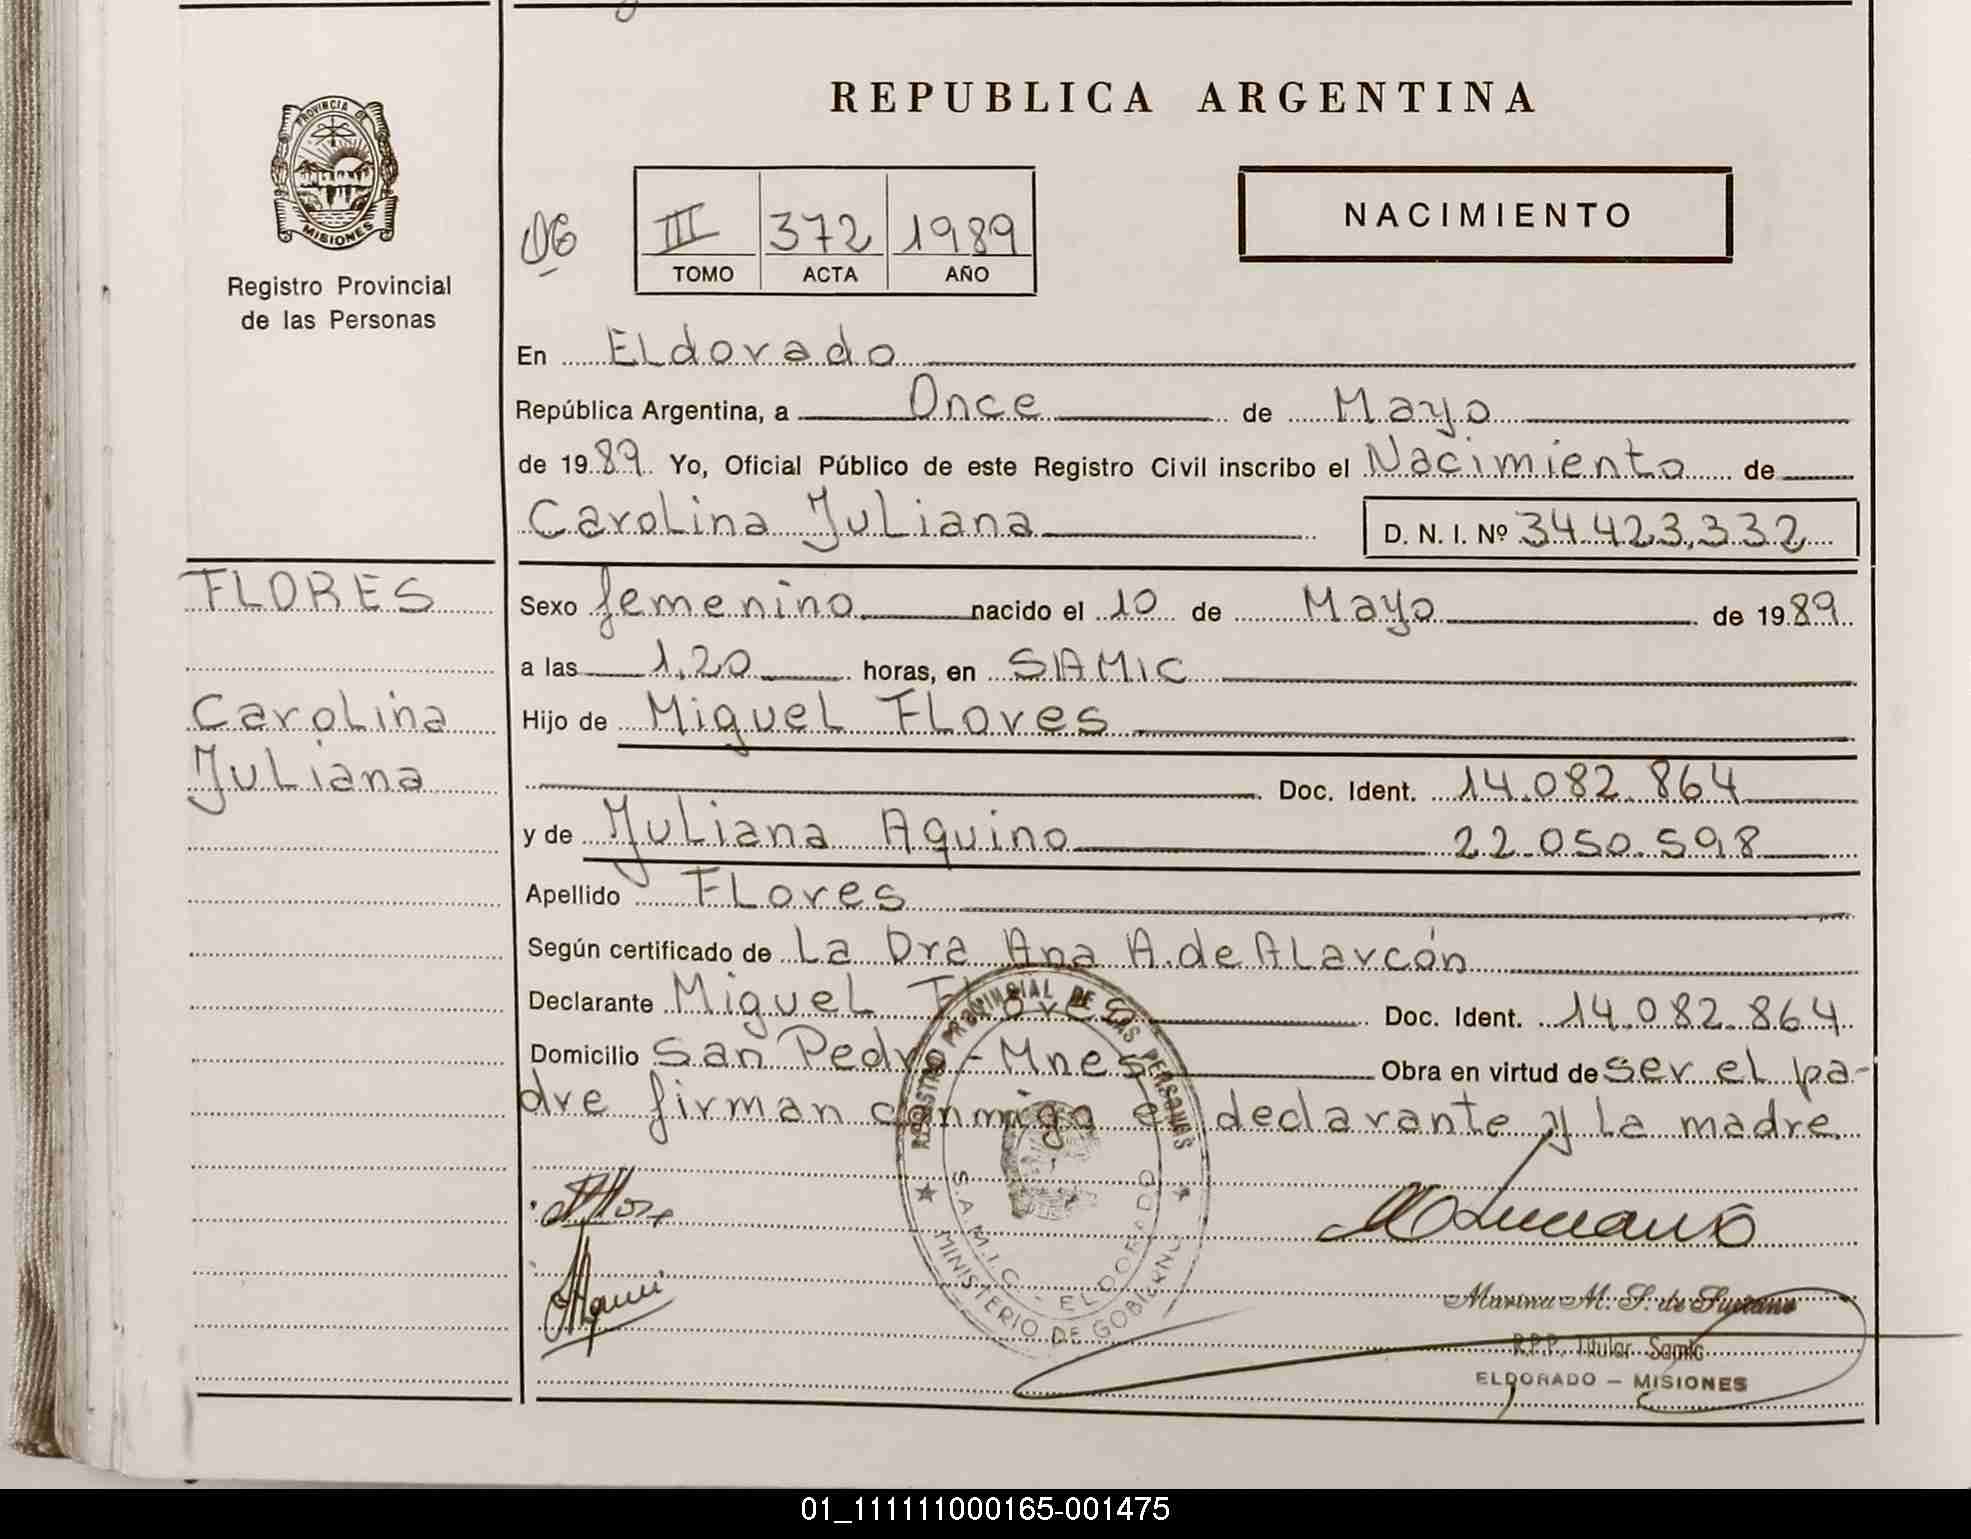 REPUBLICA ARGENTINA
PROVINCIA DE
MISIONES
Registro Provincial
de las Personas
III 372 1989
TOMO ACTA AÑO
NACIMIENTO
En Eldorado
República Argentina, a Once de Mayo
de 1989 Yo, Oficial Público de este Registro Civil inscribo el Nacimiento de
Carolina Juliana D. N. I. Nº 34.423.332
FLORES
Carolina
Juliana
Sexo femenino nacido el 10 de Mayo de 1989
a las 1,20 horas, en SAMIC
Hijo de Miguel Flores
Doc. Ident. 14.082.864
y de Juliana Aquino 22.050.598
Apellido Flores
Según certificado de La Dra Ana A. de Alarcón
Declarante Miguel Flores Doc. Ident. 14.082.864
Domicilio San Pedro - Mnes Obra en virtud de ser el pa-
dre firman conmigo el declarante y la madre
REGISTRO PROVINCIAL DE LAS PERSONAS
S.A.M.I.C. - ELDORADO
MINISTERIO DE GOBIERNO
Marina M. S. de
R.P.P. Titular Samic
ELDORADO - MISIONES
01_111111000165-001475